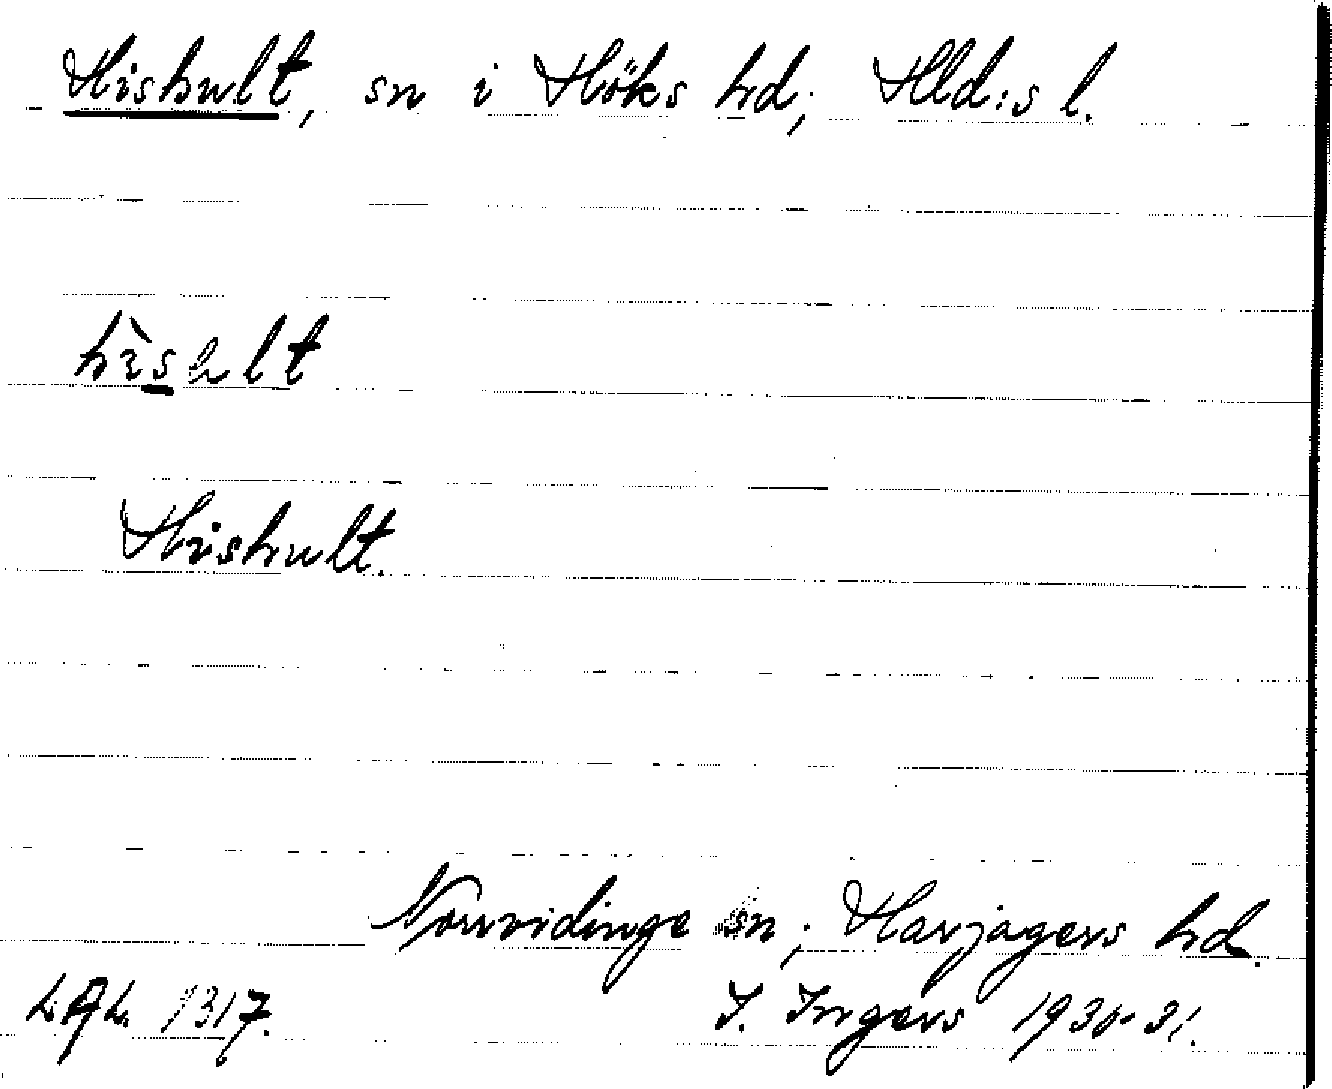 Hishult, sn i Höks hd; Hld:s l.
Hishult.
Norrvidinge sn; Harjagers hd.
LAL 1317. I. Ingers 1930-31.